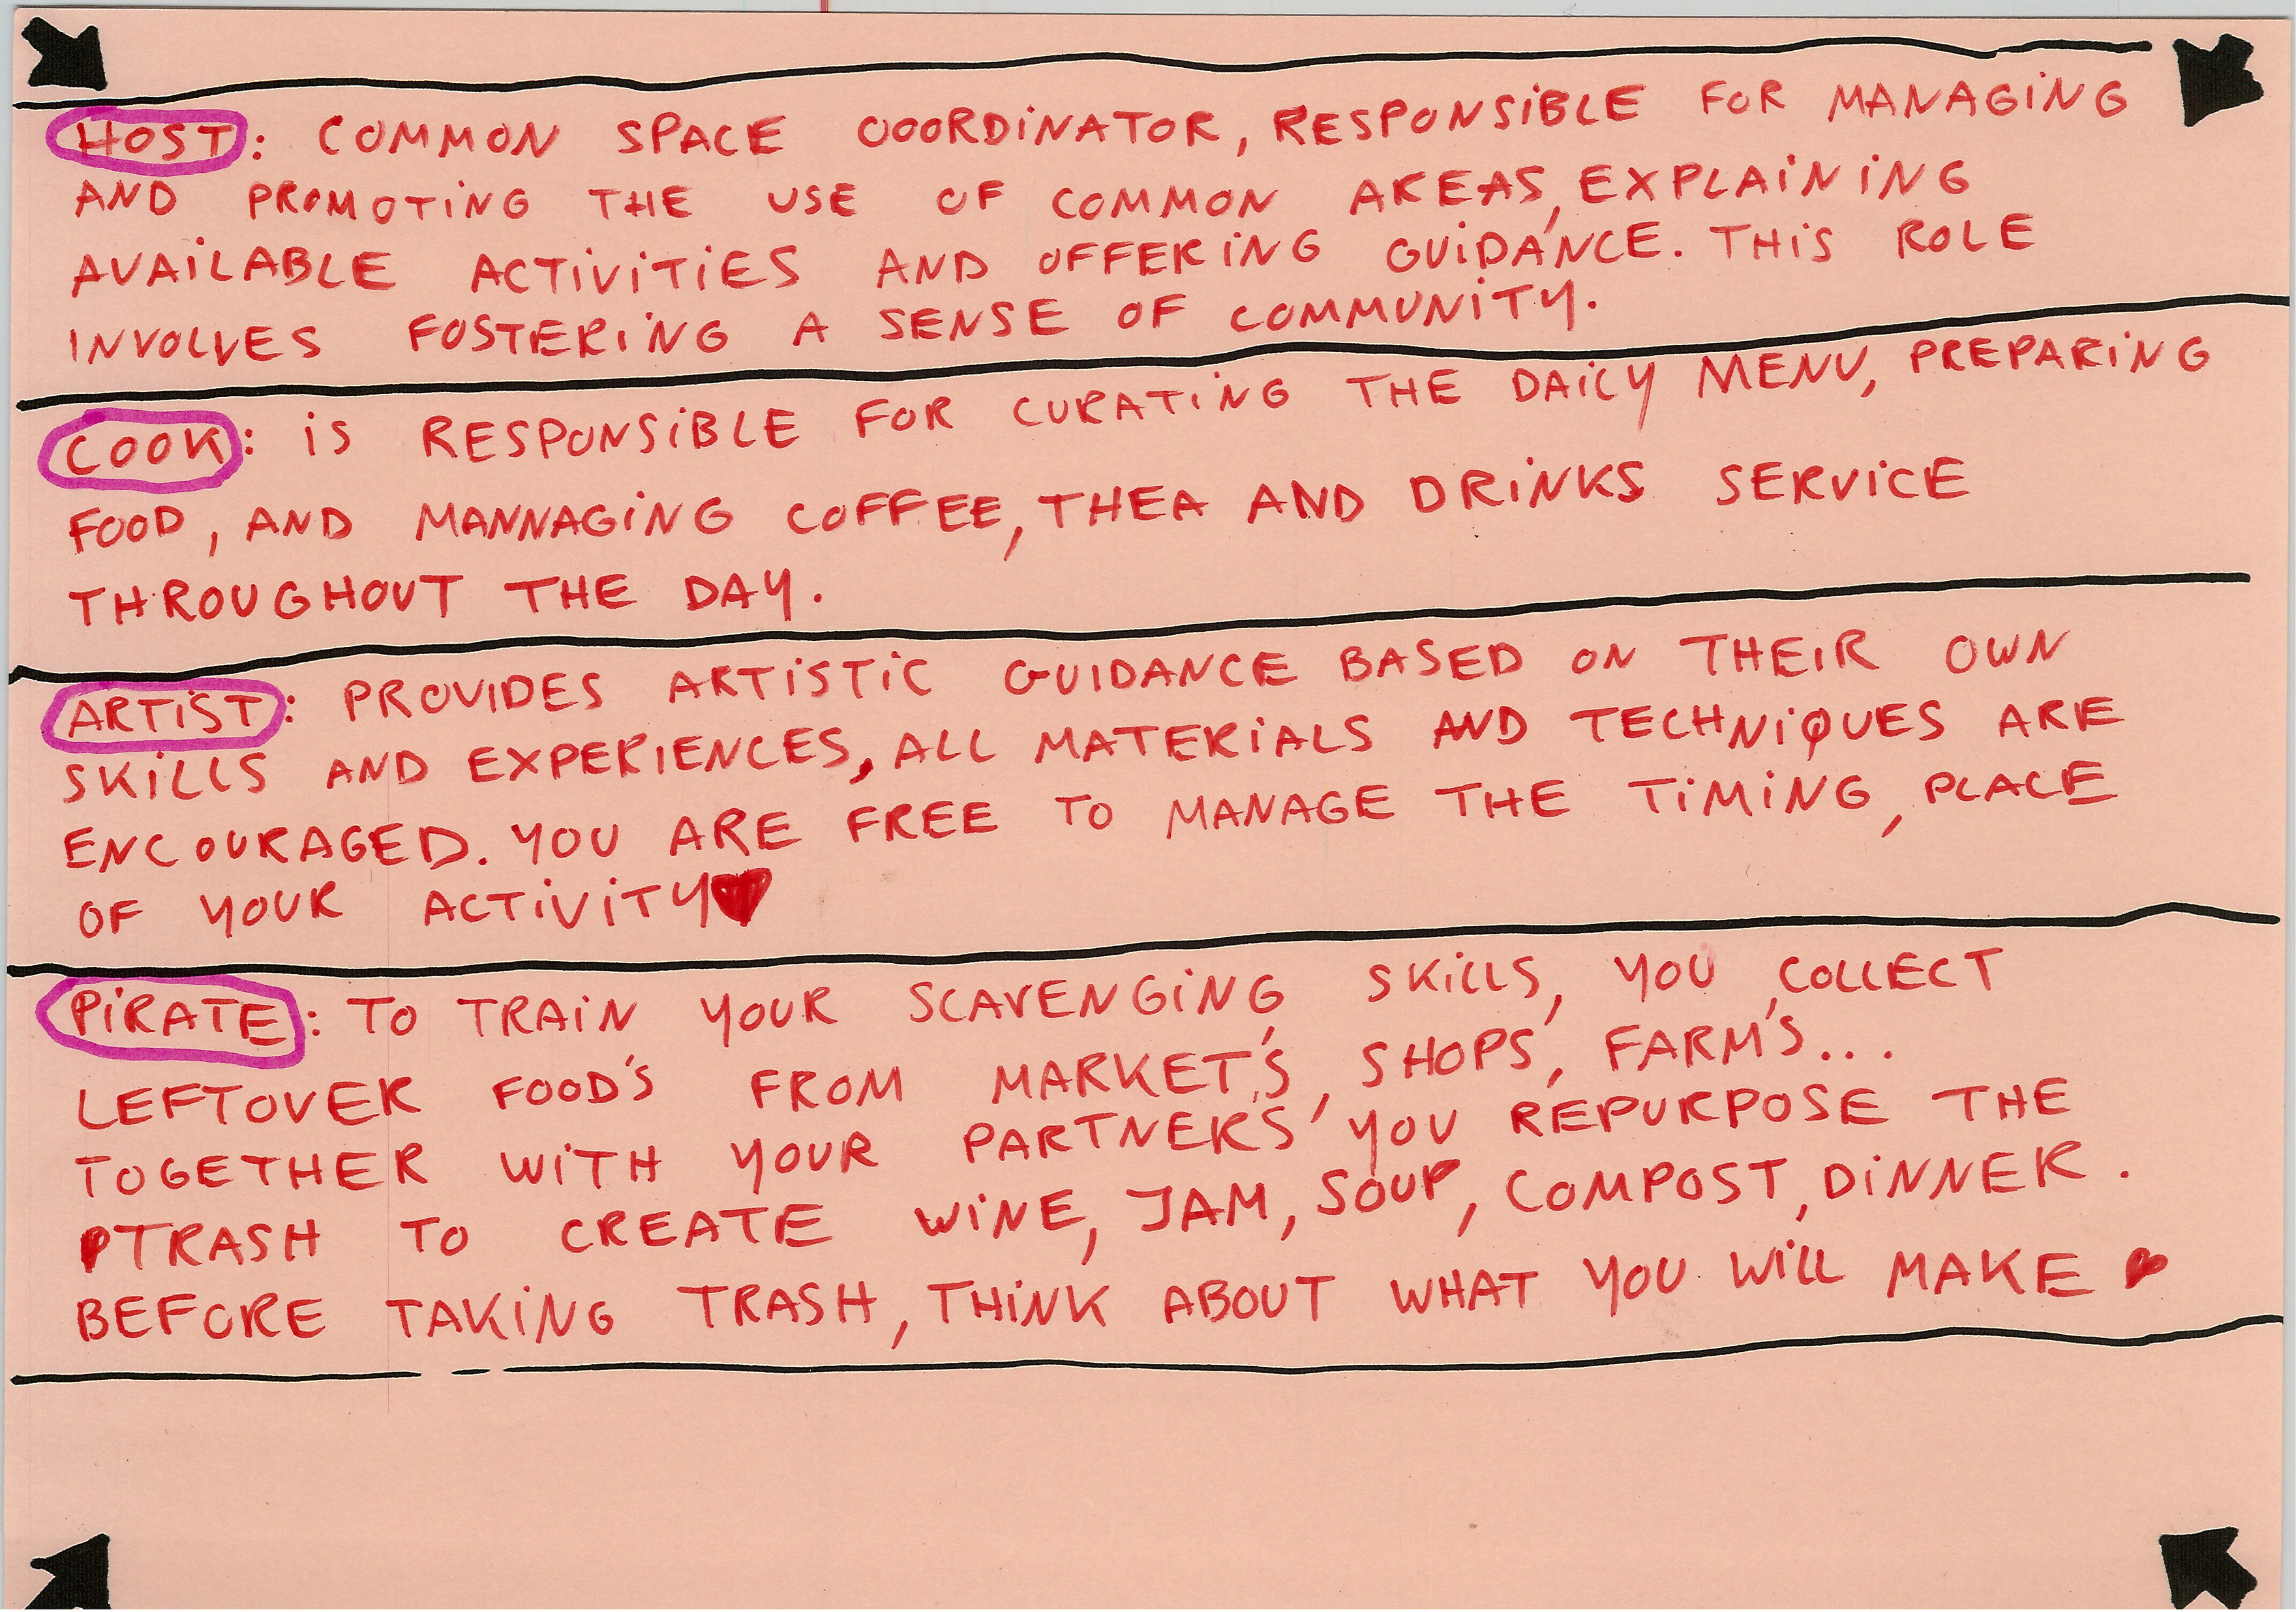 HOST: COMMON SPACE COORDINATOR, RESPONSIBLE FOR MANAGING
AND PROMOTING THE USE OF COMMON AREAS, EXPLAINING
AVAILABLE ACTIVITIES AND OFFERING GUIDANCE. THIS ROLE
INVOLVES FOSTERING A SENSE OF COMMUNITY.
COOK: IS RESPONSIBLE FOR CURATING THE DAILY MENU, PREPARING
FOOD, AND MANNAGING COFFEE, THEA AND DRINKS SERVICE
THROUGHOUT THE DAY.
ARTIST: PROVIDES ARTISTIC GUIDANCE BASED ON THEIR OWN
SKILLS AND EXPERIENCES, ALL MATERIALS AND TECHNIQUES ARE
ENCOURAGED. YOU ARE FREE TO MANAGE THE TIMING, PLACE
OF YOUR ACTIVITY♥
PIRATE: TO TRAIN YOUR SCAVENGING SKILLS, YOU COLLECT
LEFTOVER FOOD'S FROM MARKET'S, SHOPS, FARM'S...
TOGETHER WITH YOUR PARTNERS YOU REPURPOSE THE
TRASH TO CREATE WINE, JAM, SOUP, COMPOST, DINNER.
BEFORE TAKING TRASH, THINK ABOUT WHAT YOU WILL MAKE ♥